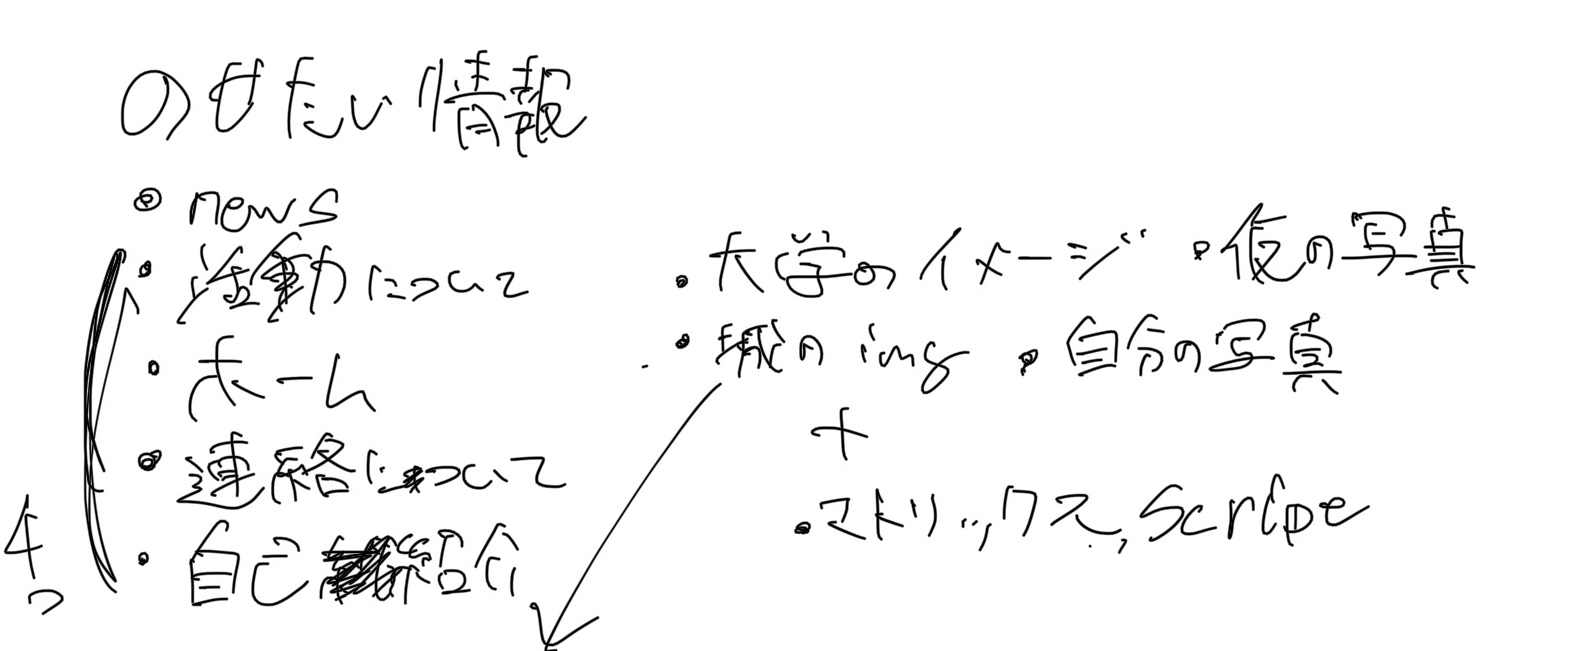 のせたい情報
・news
・活動について
・ホーム
・連絡について
・自己紹介
4つ
・大学のイメージ ・夜の写真
・城のimg ・自分の写真
+
・マトリックス, Scripe